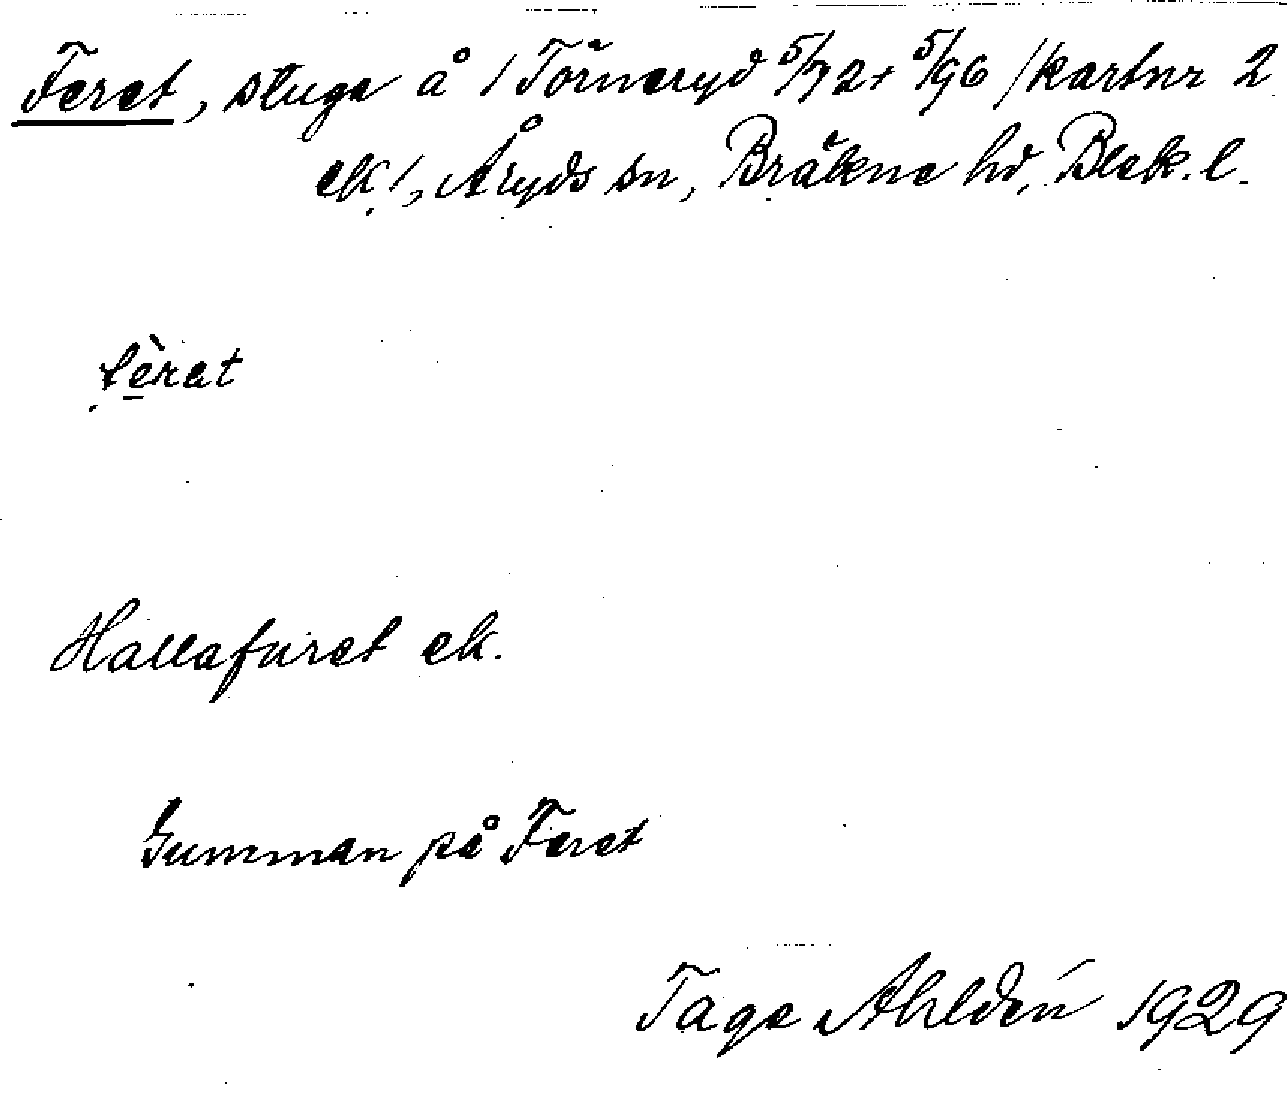 Feret, stuga å /Törneryd 5/72 + 5/96 /kartnr 2
ek/, Åryds sn, Bräkne hd, Blek. l.
fèrat
Hallafuret ek.
Gumman på Feret
Tage Ahldén 1929